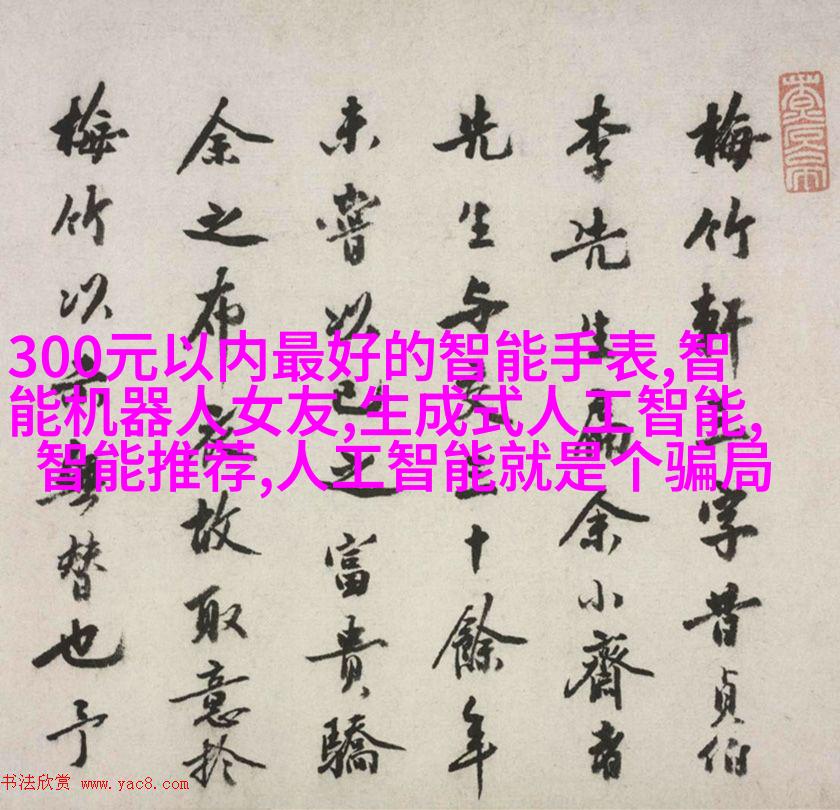 梅竹軒三字昔貞伯
李先生扁余小齋者
先生与交三十餘年
未嘗以已之富貴驕
余之布衣故取意於
梅竹以示無替也予
300元以内最好的智能手表,智
能机器人女友,生成式人工智能,
智能推荐,人工智能就是个骗局
书法欣赏 www.yac8.com